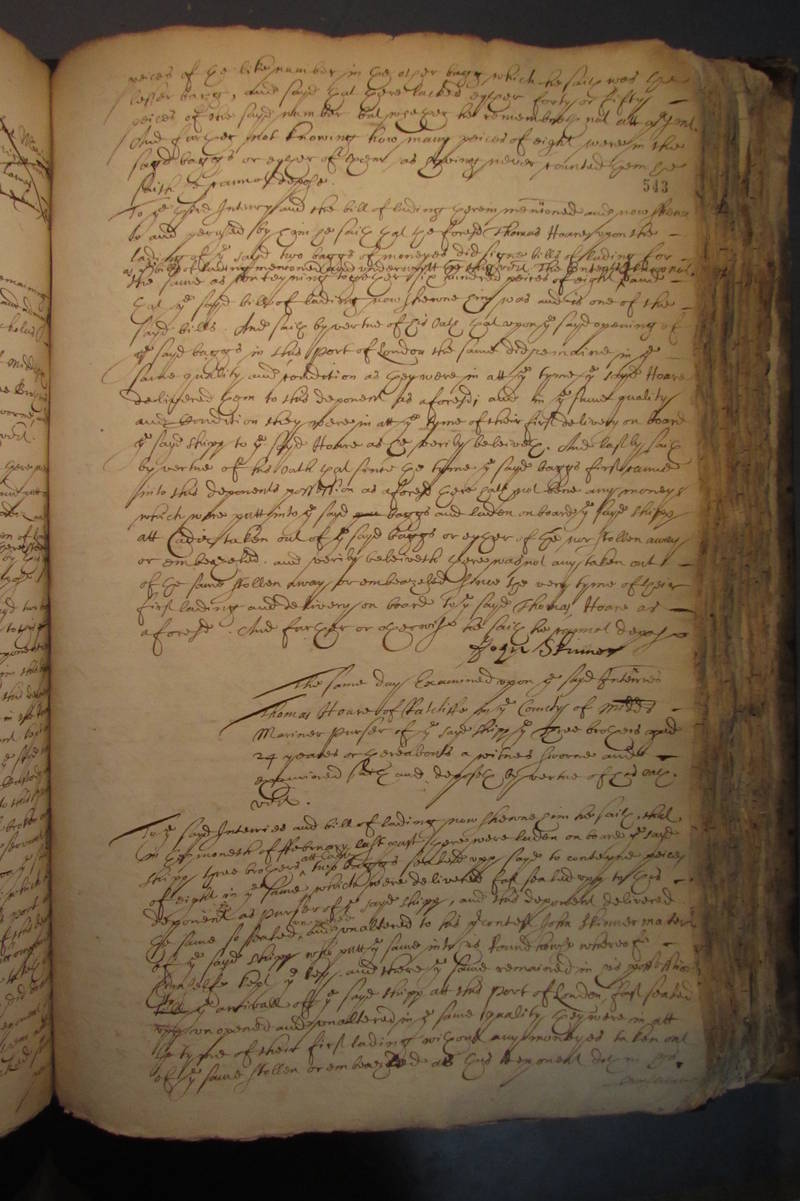 peices of the like number in the other bagg which he saith was the
lesser bagg, and sayd that there lacked eyther forty or fifty
peices of the sayd number but whether he remembreth not att present.
And further not knowing how many peices of eight were in the
sayd baggs or eyther of them as having never counted them he
saith he cannot depose.
543
To the third Interry and the bill of lading therein mentioned and now shewne
to and perused by him he saith that the foresd Thomas Hoare upon the
lading of ye sayd two baggs of moneyes did signe bills of lading for
the same as conteyning together six hundred peices of eight and
that ye sayd bill of lading now shewne him was and is one of the
sayd bills. And saith by vertue of his oath that upon ye sayd opening of
ye sayd baggs in this Port of London the same did remaine in ye
same quality and condition as they were in att ye tyme ye sayd Hoare
delivered them to this deponent as aforesd, and in ye same quality
and condition they were in att ye tyme of their first delivery on board
ye sayd shipp to ye sayd Hoare as he verily beleiveth. And lastly saith
by vertue of his oath that since the tyme ye sayd baggs first came
into this deponents possession as aforesd there hath not bene any moneys
which were putt into ye sayd baggs and laden on board ye sayd shipp
att Cadiz taken out of ye sayd baggs or eyther of them nor stollen away
or embeazeled. and verily beleiveth there was not any taken out
of the same stollen away or embeazeled since the very tyme of their
first lading and delivery on board to ye sayd Thomas Hoare as
aforesd. And further or otherwise he saith he cannot depose
John Skinner
The same day Examined upon ye sayd Interries
Thomas Hoare of Ratcliffe in ye County of Middx
Mariner purser of ye sayd shipp ye three brothers aged
24 yeares or thereabouts a witnes sworne and
examined saith and deposeth by vertue of his oath.
vizt.
To ye sayd Interries and bill of lading now shewne him he saith, that
in the moneth of ffebruary last past there were laden on board ye sayd
shipp three brothers att Cadiz two baggs sealed upp sayd to conteyne peices
of eight in ye same which were delivered fast sealed upp to this
deponent as purser of ye sayd shipp, and this deponent delivered
the same so sealed, and unaltered to his contest John Skinner master
of ye sayd shipp who putt ye same into his
himselfe kept ye key. and there ye same remained in his possession
till ye arrivall of ye sayd shipp att this Port of London fast sealed
upp unopened and unaltered in ye same quality they were in att
ye tyme of their first lading without any moneyes taken out
of ye same stollen or embeazeled as this deponent